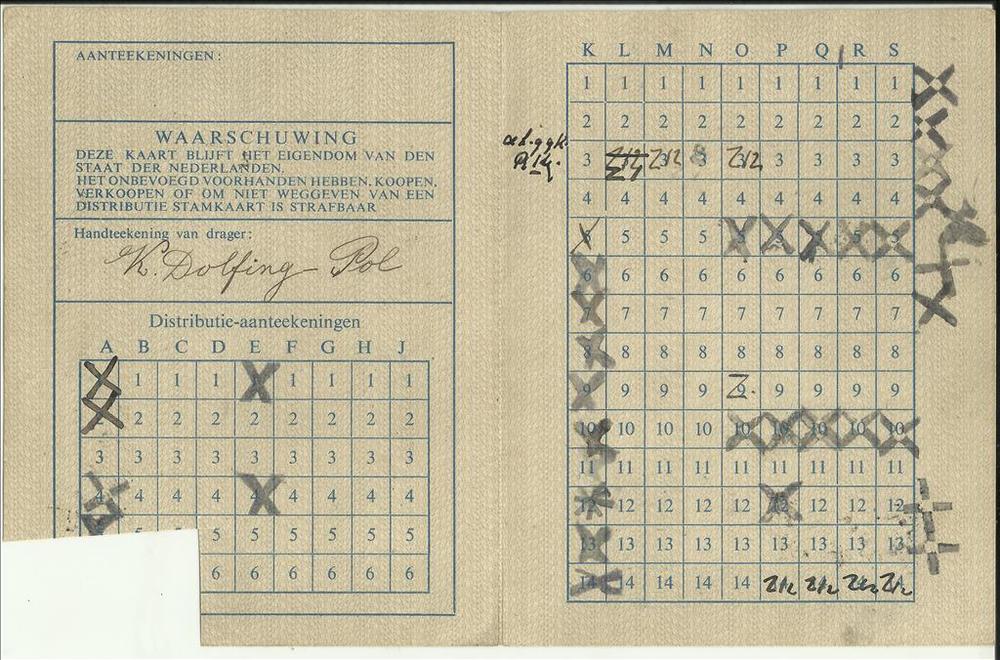 AANTEEKENINGEN:
WAARSCHUWING
DEZE KAART BLIJFT HET EIGENDOM VAN DEN
STAAT DER NEDERLANDEN.
HET ONBEVOEGD VOORHANDEN HEBBEN, KOOPEN,
VERKOOPEN OF OM NIET WEGGEVEN VAN EEN
DISTRIBUTIE STAMKAART IS STRAFBAAR
Handteekening van drager:
K. Dolfing-Pol
Distributie-aanteekeningen
A B C D E F G H J
1 1 1 1 1 1 1
2 2 2 2 2 2 2 2
3 3 3 3 3 3 3 3 3
4 4 4 4 4 4 4 4 4
5 5 5 5 5 5 5 5
6 6 6 6 6 6
K L M N O P Q R S
1 1 1 1 1 1 1 1 1
2 2 2 2 2 2 2 2 2
3 Z12 Z12 3 Z12 3 3 3 3
4 4 4 4 4 4 4 4 4
5 5 5 5 5 5
6 6 6 6 6 6 6 6 6
7 7 7 7 7 7 7 7 7
8 8 8 8 8 8 8 8 8
9 9 9 9 9 9 9 9 9
10 10 10 10 10 10 10 10 10
11 11 11 11 11 11 11 11 11
12 12 12 12 12 12 12 12 12
13 13 13 13 13 13 13 13 13
14 14 14 14 14 Z12 Z12 Z12 Z12